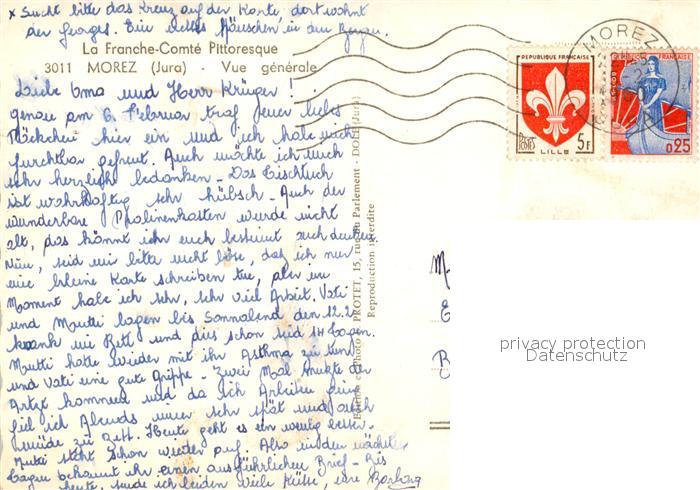 x Sucht bitte das Kreuz auf der Karte, dort wohnt
der Georges. Ein altes Häuschen in den Bergen.
La Franche-Comté Pittoresque
3011 MOREZ (Jura) - Vue générale
Liebe Oma und Herr Krüger!
genau am 6. Februar traf Euer liebes
Päckchen hier ein und ich habe mich
furchtbar gefreut. Auch möchte ich mich
sehr herzlich bedanken - Das Tischtuch
ist wahrhaftig sehr hübsch. Auch der
wunderbare Pralinenkasten wurde nicht
alt, das könnt ihr euch bestimmt auch denken
Nun, seid mir bitte nicht böse, daß ich nur
eine kleine Karte schreiben tue, aber im
Moment habe ich sehr, sehr viel Arbeit. Vati
und Mutti lagen bis Sonnabend den 12.2
krank im Bett und dies schon seid 14 Tagen.
Mutti hatte wieder mit ihr Asthma zu tun
und Vati eine gute Grippe - Zwei Mal mußte der
Artzt kommen und da ich Arbeiten ging
fiel ich Abends immer sehr spät und auch
müde zu Bett. Heute geht es ein wenig besser.
Mutti steht schon wieder auf. Also in den nächsten
Tagen bekommt ihr einen ausführlichen Brief - Bis
heute, sende ich beiden viele Küsse, eure Barbara
Edition et Photo PROTET, 15, rue du Parlement - DOLE (Jura)
Reproduction interdite
REPUBLIQUE FRANÇAISE
POSTES
5F
LILLE
REPUBLIQUE FRANÇAISE
0,25
MOREZ
JURA
M
E
B
privacy protection
Datenschutz